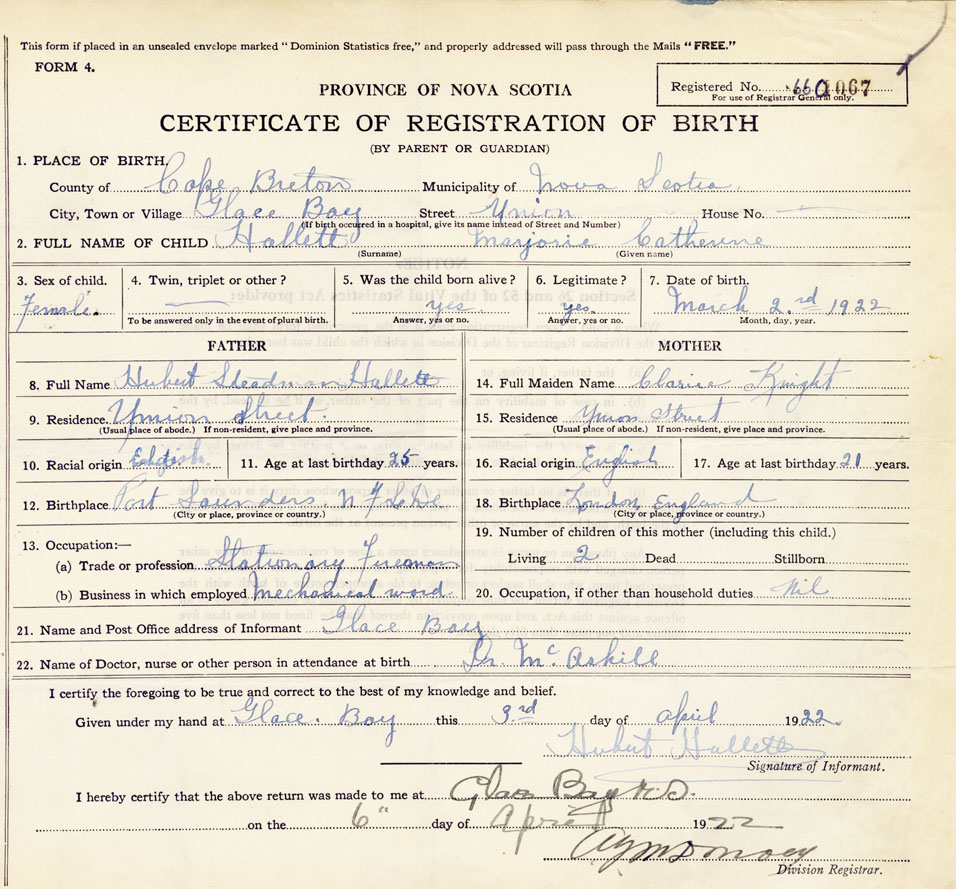 This form if placed in an unsealed envelope marked "Dominion Statistics free," and properly addressed will pass through the Mails "FREE."
FORM 4.
PROVINCE OF NOVA SCOTIA
Registered No. 1067
For use of Registrar General only.
CERTIFICATE OF REGISTRATION OF BIRTH
(BY PARENT OR GUARDIAN)
1. PLACE OF BIRTH.
County of Cape Breton Municipality of Nova Scotia
City, Town or Village Glace Bay Street Union House No. —
(If birth occurred in a hospital, give its name instead of Street and Number)
2. FULL NAME OF CHILD Hallett Marjorie Catherine
(Surname) (Given name)
3. Sex of child. 4. Twin, triplet or other? 5. Was the child born alive? 6. Legitimate? 7. Date of birth.
Female. — yes yes. March 2.rd 1922
To be answered only in the event of plural birth. Answer, yes or no. Answer, yes or no. Month, day, year.
FATHER MOTHER
8. Full Name Hubert Steadman Hallett 14. Full Maiden Name Clarice Knight
9. Residence. Union Street. 15. Residence Union Street
(Usual place of abode.) If non-resident, give place and province. (Usual place of abode.) If non-resident, give place and province.
10. Racial origin 11. Age at last birthday 25 years. 16. Racial origin English 17. Age at last birthday 21 years.
12. Birthplace Port Saunders, NFLD 18. Birthplace London, England
(City or place, province or country.) (City or place, province or country.)
13. Occupation:— 19. Number of children of this mother (including this child.)
(a) Trade or profession Stationary Fireman Living 2 Dead Stillborn
(b) Business in which employed Mechanical word. 20. Occupation, if other than household duties Nil
21. Name and Post Office address of Informant Glace Bay
22. Name of Doctor, nurse or other person in attendance at birth Dr. McAskill
I certify the foregoing to be true and correct to the best of my knowledge and belief.
Given under my hand at Glace. Bay this 3rd day of April 1922.
Hubert Hallett
Signature of Informant.
I hereby certify that the above return was made to me at Glace Bay N.S.
on the 6" day of April 1922
Division Registrar.